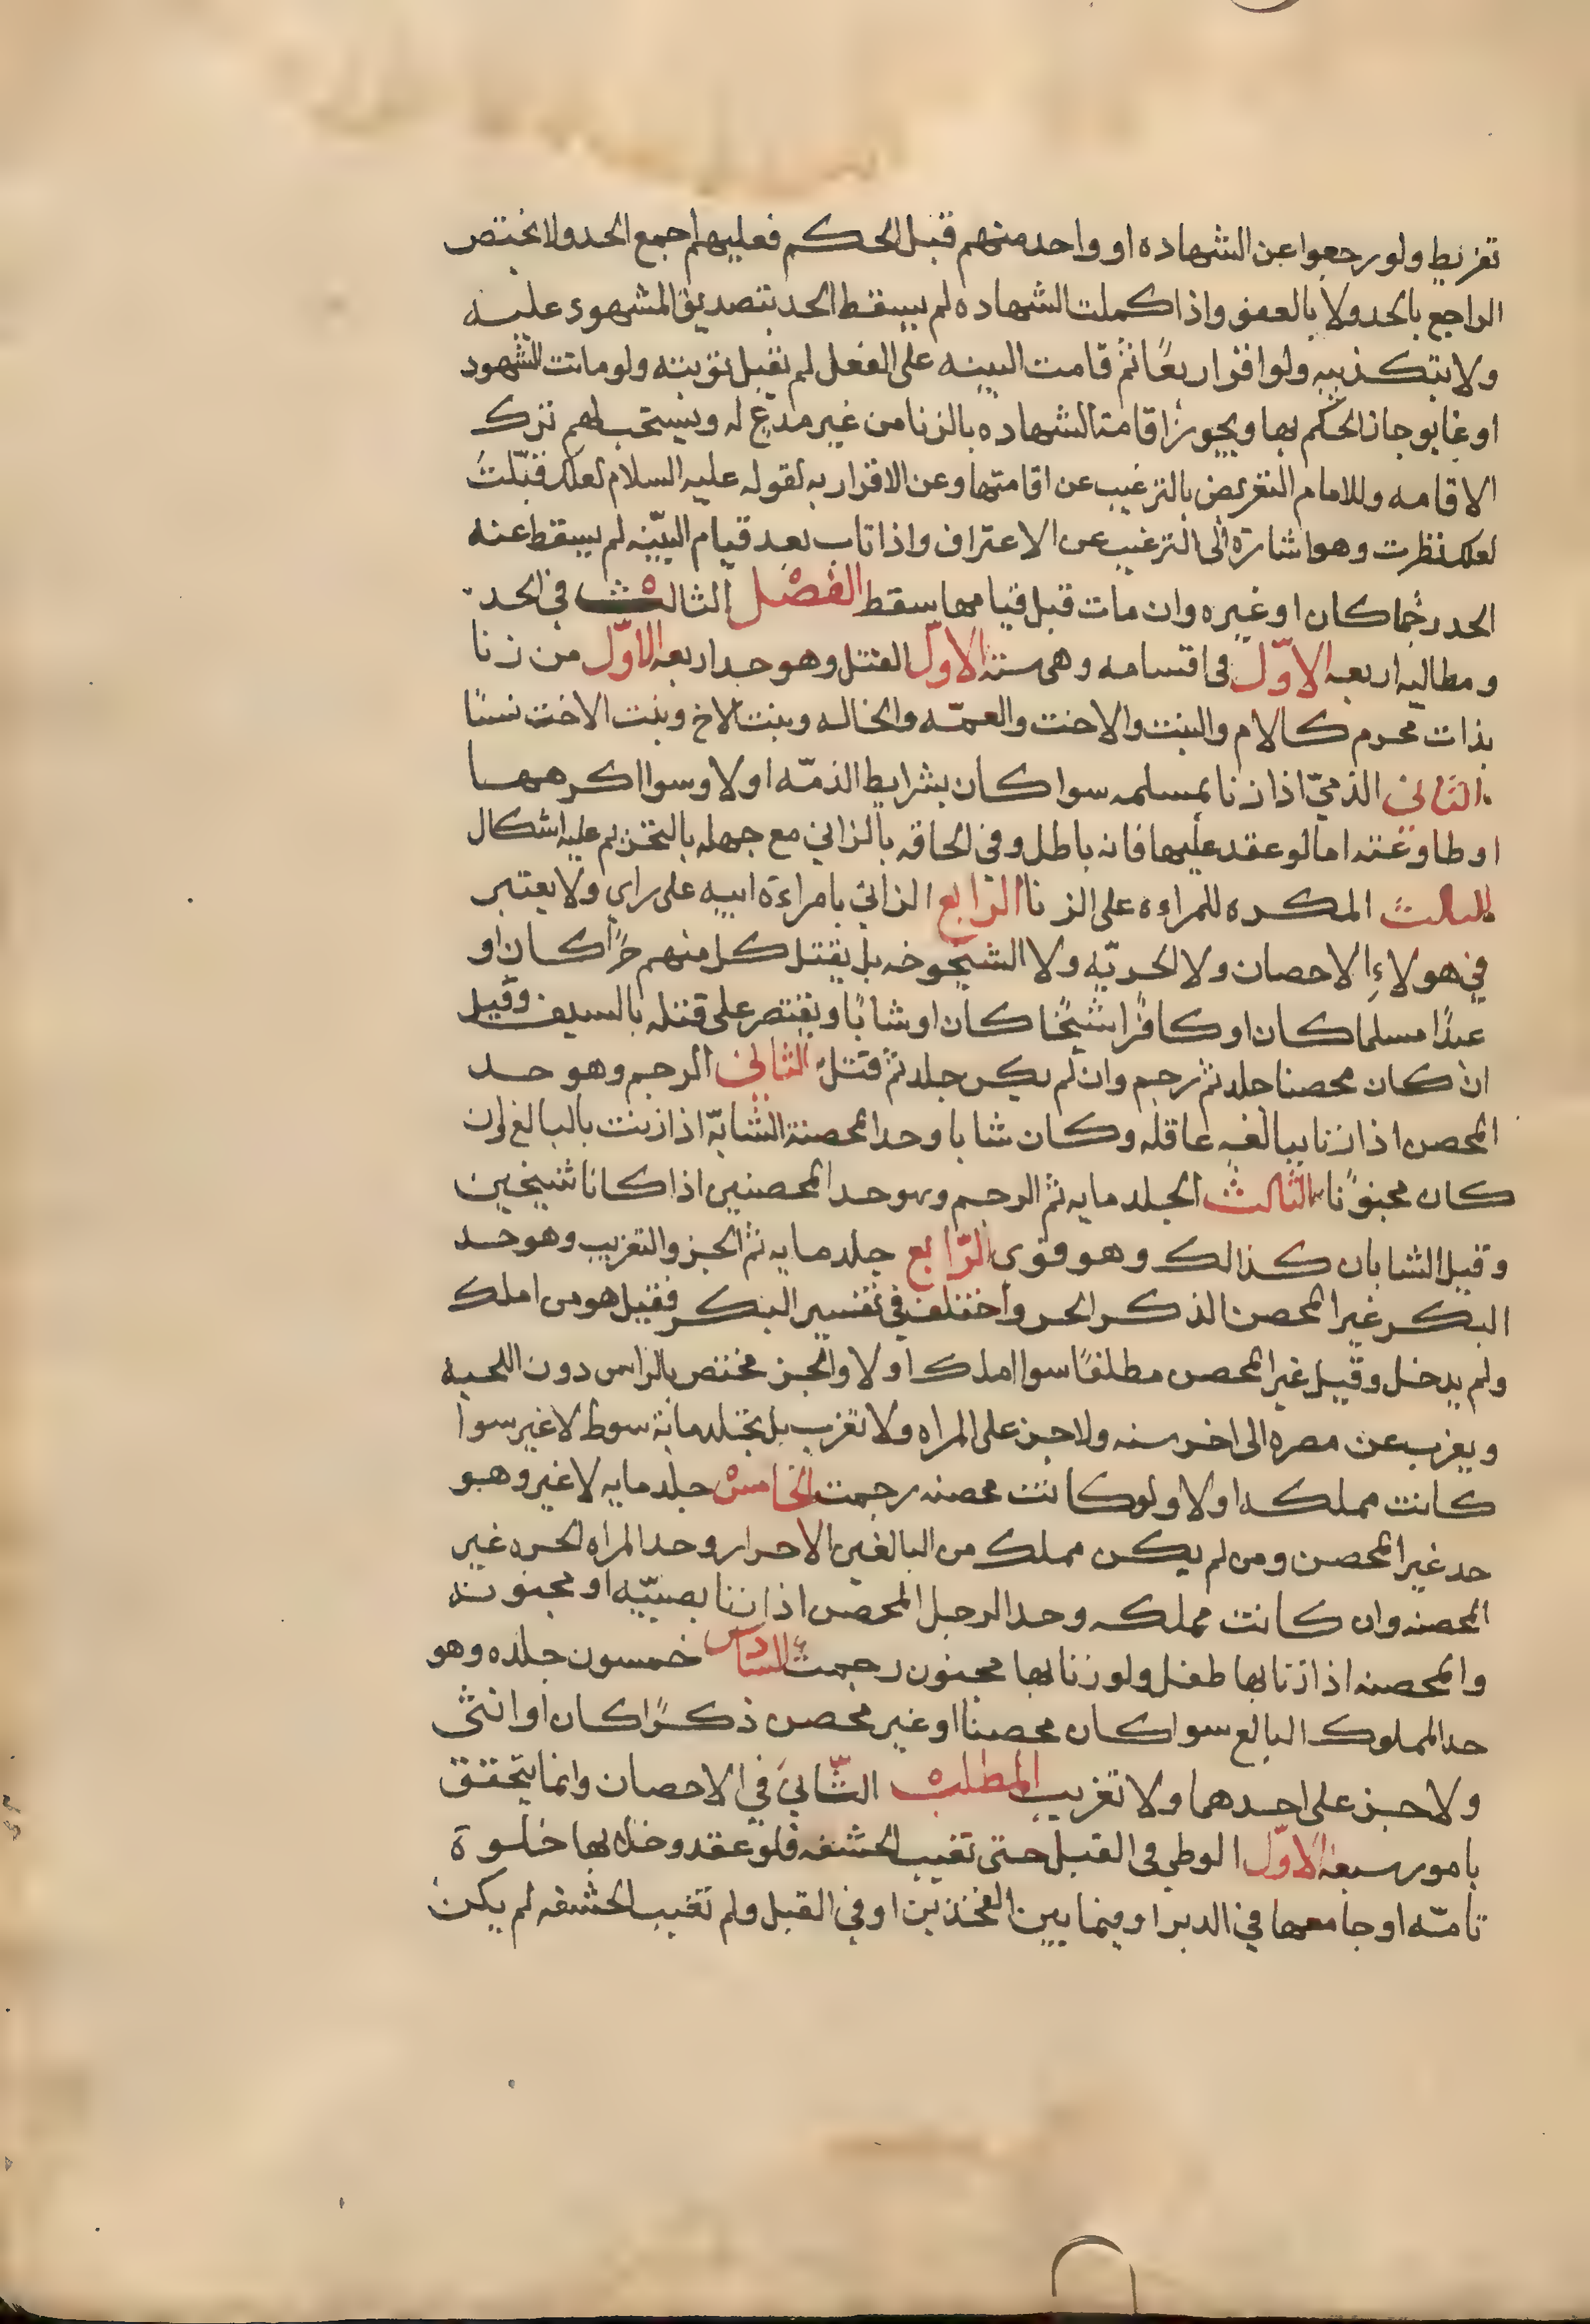 تفريط ولو رجعوا عن الشهاده او واحد منهم قبل الحكم فعليهم اجمع الحد ولا يختص
الراجع بالحد ولا بالعفو واذا كملت الشهاده لم يسقط الحد بتصديق المشهود عليه
ولا بتكذيبه ولو اقر اربعًا ثم قامت البينه على الفعل لم تقبل توبته ولو ماتت الشهود
او غابو جاز الحكم بها ويجوز اقامة الشهاده بالزنا من غير مدعٍ له ويستحب لهم ترك
الاقامه وللامام التعريض بالترغيب عن اقامتها وعن الاقرار به لقوله عليه السلام لعلك قبّلت
لعلك نظرت وهو اشارة الى الترغيب عن الاعتراف واذا تاب بعد قيام البيّنه لم يسقط عنه
الحد رجما كان او غيره وان مات قبل قيامها سقط الفصل الثالث في الحد
ومطالبه اربعه الاوّل فى اقسامه وهى ستة الاوّل القتل وهو حد اربعه الاوّل من زنا
بذات محرم كالام والبنت والاخت والعمّه والخاله وبنت الاخ وبنت الاخت نسبًا
الثانى الذميّ اذا زنا بمسلمه سوا كان بشرايط الذمّه او لا وسوا اكرهها
او طاوعته اما لو عقد عليها فانه باطل وفي الحاقه بالزاني مع جهله بالتحريم عليه اشكال
الثالث المكره للمراءه على الزنا الرابع الزاني بامراءة ابيه على راي ولا يعتبر
في هولاءِ الاحصان ولا الحريّه ولا الشيخوخه بل يقتل كل منهم حرًا كان او
عبدًا مسلما كان او كافرًا شيخًا كان او شابًا ويقتصر على قتله بالسيف وقيل
ان كان محصنا جلد ثم رجم وان لم يكن جلد ثم قتل الثاني الرجم وهو حد
المحصن اذا زنا ببالغه عاقله وكان شابا وحد المحصنة الشابّه اذا زنت بالبالغ وان
كان مجنوًنا الثالث الجلد مايه ثم الرجم وهو حد المحصنين اذا كانا شيخين
وقيل الشابان كذالك وهو قوى الرّابع جلد مايه ثم الجز والتغريب وهو حد
البكر غير المحصن الذكر الحر واختلف في تفسير البكر فقيل هو من املك
ولم يدخل وقيل غير المحصن مطلقًا سوا املك او لا والجز مختص بالراس دون اللحيه
ويغرب عن مصره الى اخر سنه ولا جز على المراه ولا تغرب بل تجلد مائة سوط لا غير سوا
كانت مملكه او لا ولو كانت محصنه رجمت الخامس جلد مايه لا غير وهو
حد غير المحصن ومن لم يكن مملك من البالغين الاحرار وحد المراه الحره غير
المحصنه وان كانت مملكه وحد الرجل المحصن اذا زنا بصبيّه او مجنونه
والمحصنه اذا زنا بها طفل ولو زنا بها مجنون رجمت السادس خمسون جلده وهو
حد المملوك البالغ سوا كان محصنا او غير محصن ذكرًا كان او انثى
ولا جز على احدهما ولا تغريب المطلب الثّاني في الاحصان وانما يتحقق
بامور سبعة الاوّل الوطي في القبل حتى تغيب الحشفه فلو عقد وخلا بها خلوة
تامّه او جامعها في الدبر او فيما بين الفخذين او في القبل ولم تغيب الحشفه لم يكن